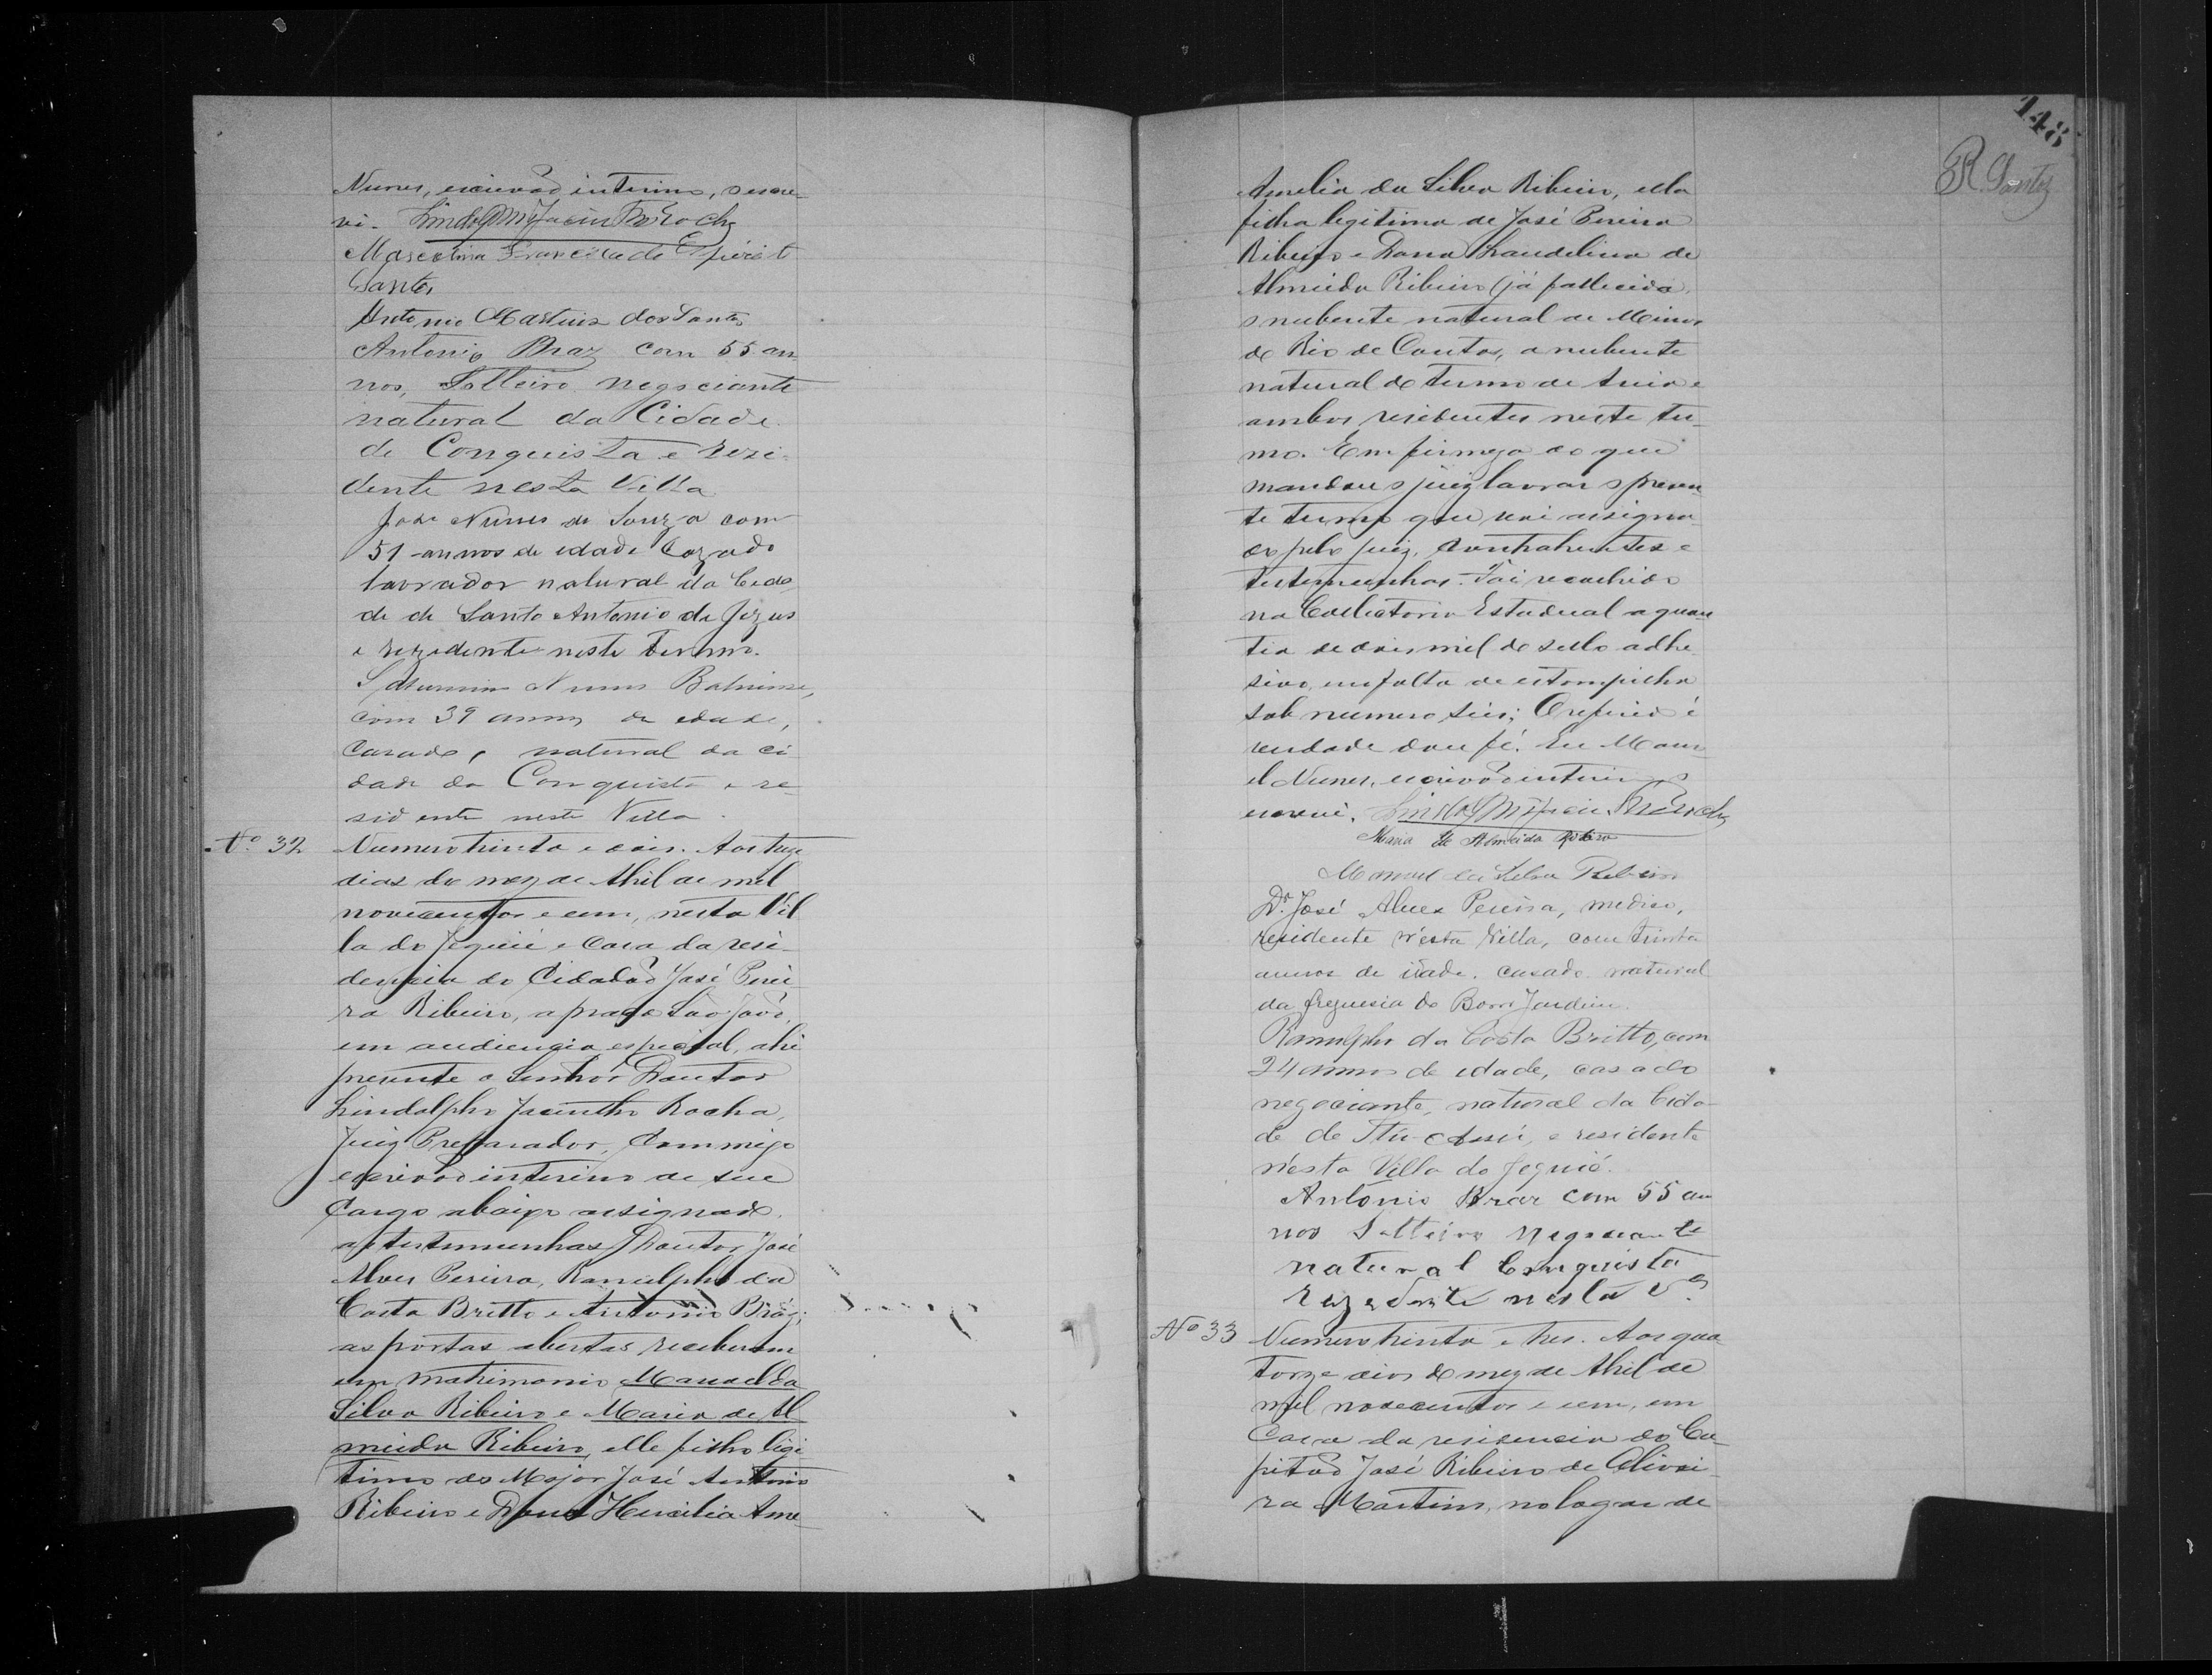 Nunes, escrivão interino, o escre-
vi. Lindolpho Jacintho Rocha
Marcolina Francisca do Espirit
Santo
Antonio Martins dos Santos
Antonio Braz com 55 an
nos, Solteiro negociante
natural da Cidade
de Conquista e rezi-
dente nesta Villa
José Nunes de Souza com
51 annos de idade Cazado
lavrador natural da Cida
de de Santo Antonio de Jezus
e rezidente neste termo.
Nunes Bahiense,
com 39 annos de edade,
Casado, natural da ci
dade da Conquista e re-
sidente nesta Villa.
Nº 32 Numero trinta e dois. Aos treze
dias do mez de Abril de mil
novecentos e cem, nesta Vil
la do Jequié e Casa da resi-
dencia do Cidadão José Perei
ra Ribeiro, a praça São João,
em audiencia especial, ahi
presente o Senhor Doutor
Lindolpho Jacintho Rocha,
Juiz Preparador, Commigo
escrivão interino de seu
Cargo abaixo assignado,
as testemunhas Doutor José
Alves Pereira, Ranulpho da
Costa Britto e Antonio Bráz;
as portas abertas receberam
em matrimonio Manoel da
Silva Ribeiro e Maria de Al
meida Ribeiro, elle filho ligi
timo do Major José Antonio
Ribeiro e Dona Hercilia Ame-
148
R. Santos
Amelia da Silva Ribeiro, ella
filha legitima de José Pereira
Ribeiro e Dona Laudelina de
Almeida Ribeiro (já fallecida,
o nubente natural de Minas
do Rio de Contas, a nubente
natural do termo de Areia e
ambos residentes neste ter-
mo. Em firmeza do que
mandou o juiz lavrar o presen
te termo que vai assigna-
do pelo juiz, contrahentes e
testemunhas. Foi recolhido
na Collectoria Estadual a quan
tia de dois mil de sello adhe
sivo, em falta de estampilha
sob numero seis; O referido é
verdade dou fé. Eu Mano-
el Nunes, escrivão interino o
escrevi. Lindolpho Jacintho Rocha
Maria de Almeida Ribeiro
Manoel da Silva Ribeiro
Dr. José Alves Pereira, medico,
residente n'esta Villa, com trinta
annos de idade, casado natural
da freguesia do Bom Jardim.
Ranulpho da Costa Britto, com
24 annos de edade, casado
negociante, natural da Cida-
de de Itú-Assú, e residente
n'esta Villa do Jequié.
Antonio Braz com 55 an
nos Solteiro Negociante
natural Conquista
rezedente nesta Vª
Nº 33 Numero trinta e tres. Aos qua
torze dias do mez de Abril de
mil novecentos e cem, em
Casa da residencia do Ca-
pitão José Ribeiro de Olivei-
ra Martins, no lugar de